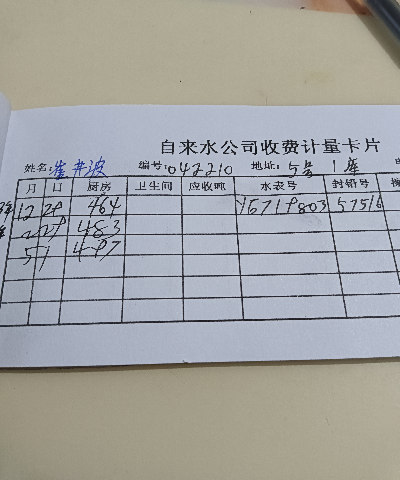 自来水公司收费计量卡片
姓名:崔井波 编号:042210 地址:5号1座
月 日 厨房 卫生间 应收吨 水表号 封铅号
12 29 464 Y6719803 57516
2 29 483
5 1 497